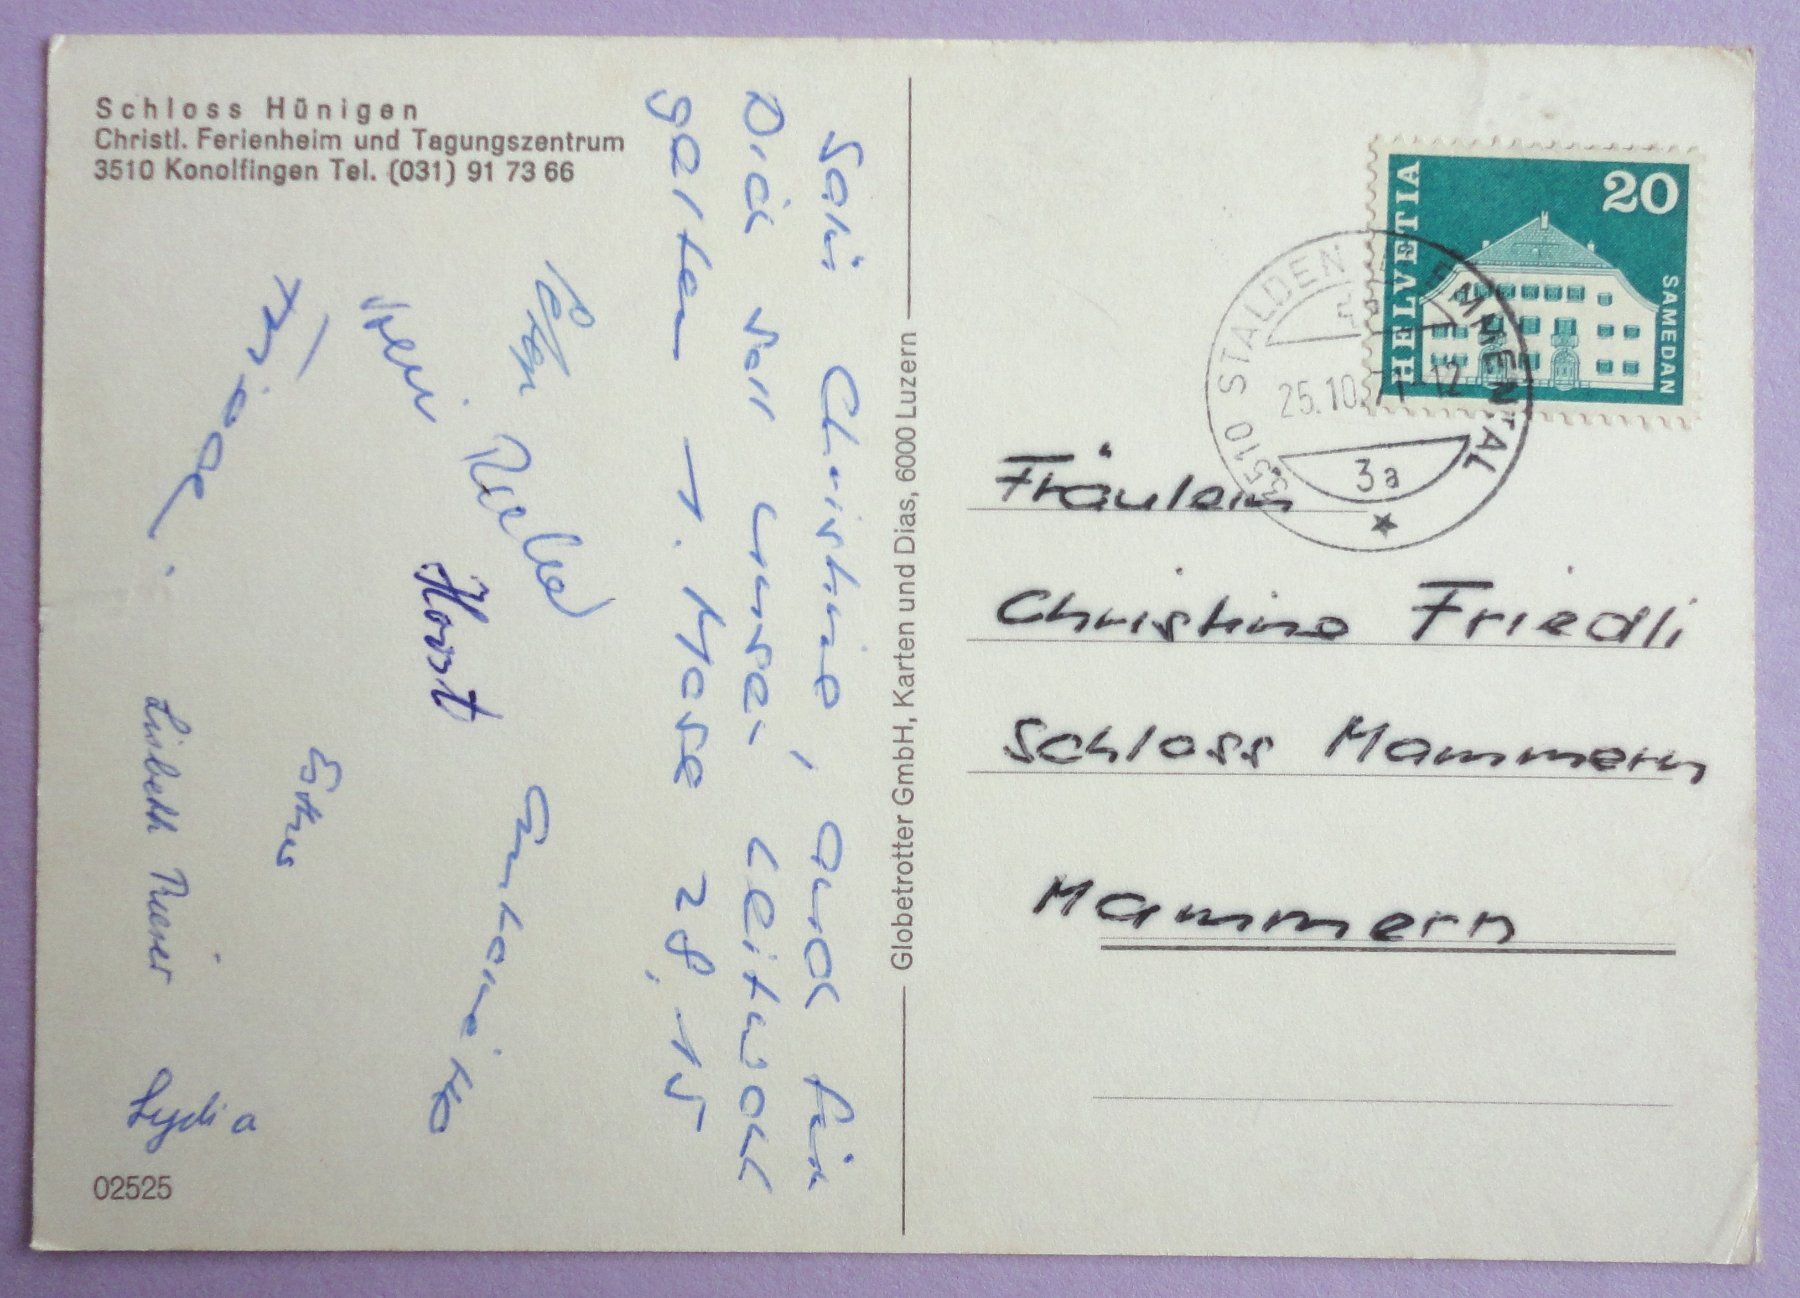 Schloss Hünigen
Christl. Ferienheim und Tagungszentrum
3510 Konolfingen Tel. (031) 91 73 66
Sali Christine, auch für
Dich soll unser Leitwort
gelten 1. Mose 28,15
Vreni
Horst
Esther
Lisbeth
Lydia
02525
Globetrotter GmbH, Karten und Dias, 6000 Luzern
HELVETIA
20
SAMEDAN
3510 STALDEN EMMENTAL
25.10.71 12
3a
Fräulein
Christine Friedli
Schloss Mammern
Mammern